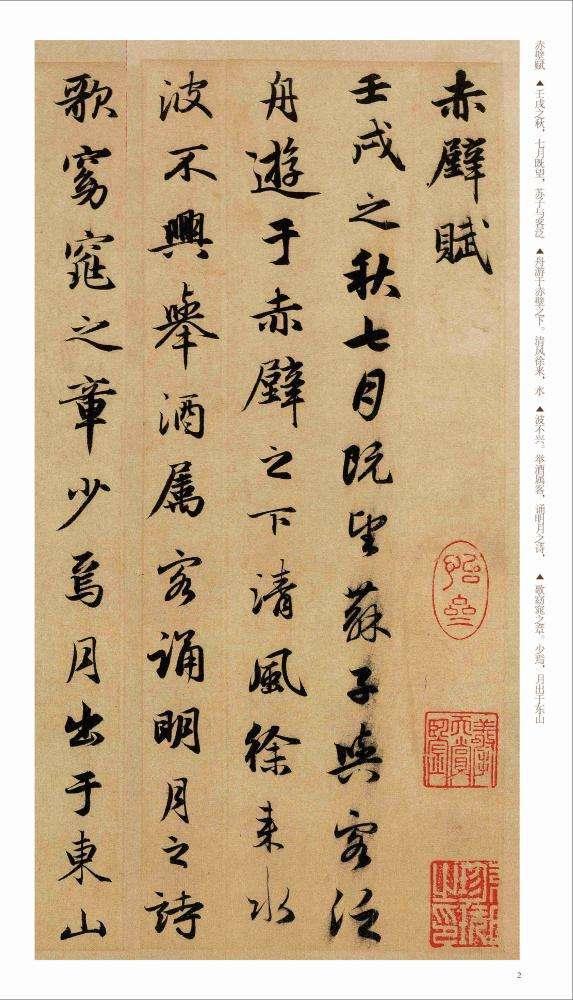 赤壁赋 ▲壬戌之秋，七月既望，苏子与客泛 ▲舟游于赤壁之下。清风徐来，水 ▲波不兴。举酒属客，诵明月之诗， ▲歌窈窕之章。少焉，月出于东山
赤壁賦
壬戌之秋七月既望蘇子與客泛
舟遊于赤壁之下清風徐来水
波不興舉酒属客誦明月之詩
歌窈窕之章少焉月出于東山
2